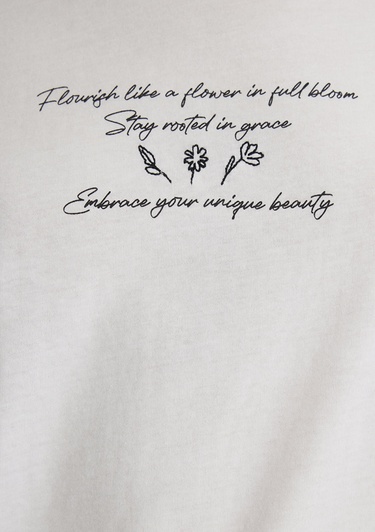 Flourish like a flower in full bloom
Stay rooted in grace
Embrace your unique beauty